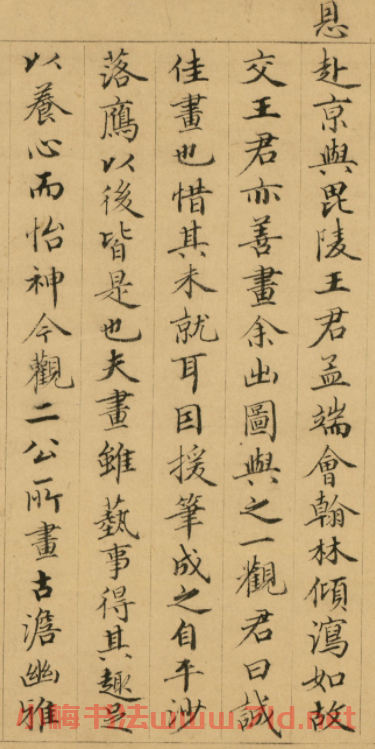 恩
赴京與毘陵王君孟端會翰林傾瀉如故
交王君亦善畫余出圖與之一觀君曰誠
佳畫也惜其未就耳因援筆成之自平沙
落鴈以後皆是也夫畫雖藝事得其趣足
以養心而怡神今觀二公所畫古澹幽雅
小梅书法www.7ld.net